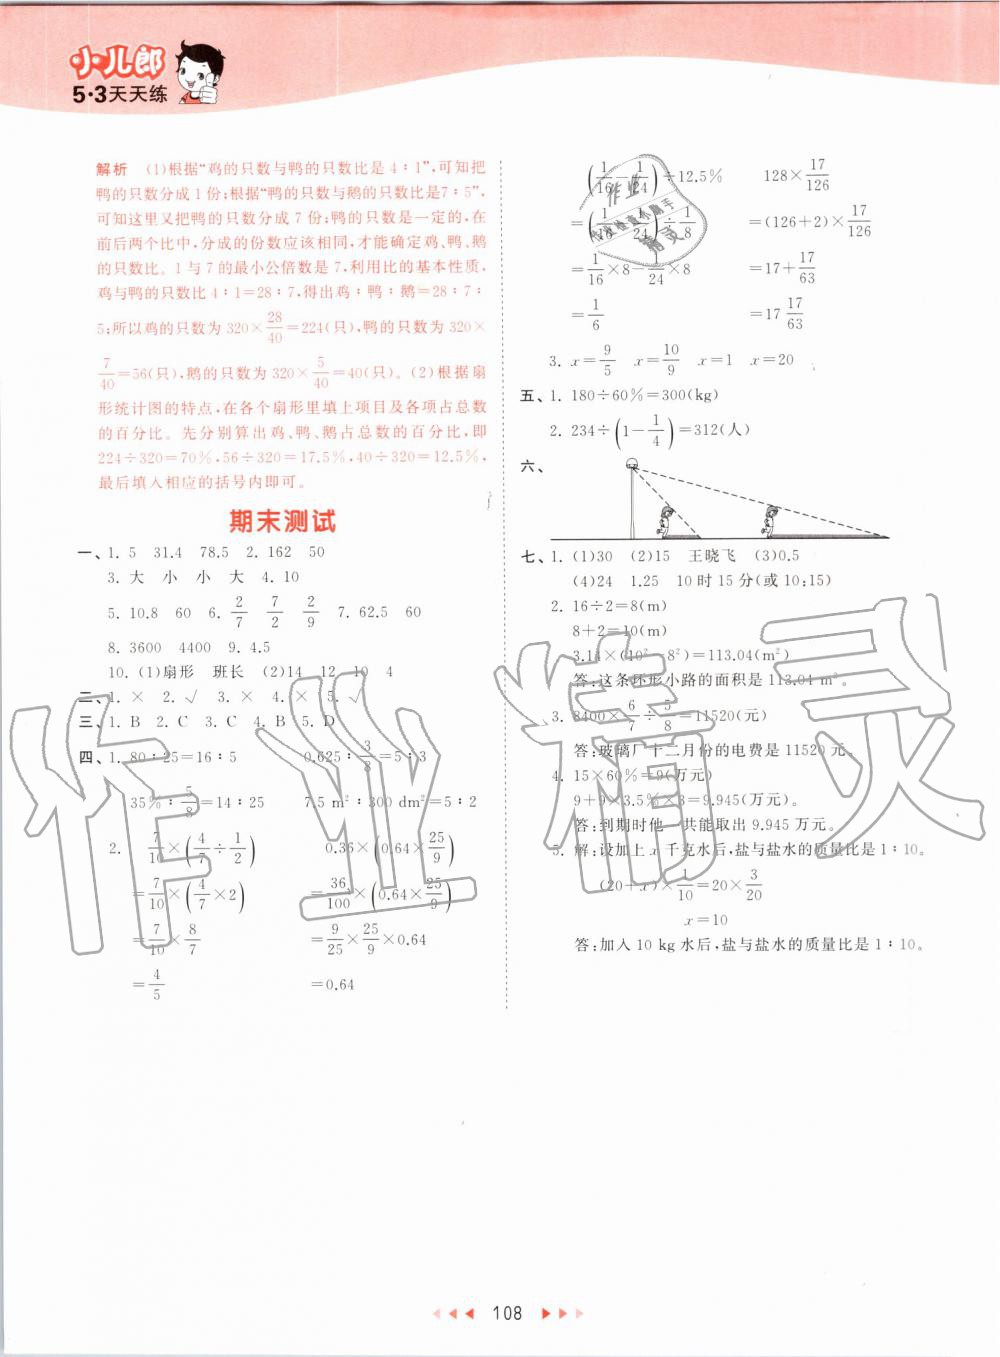 小儿郎
5·3天天练
解析 (1)根据“鸡的只数与鸭的只数比是4∶1”,可知把
鸭的只数分成1份;根据“鸭的只数与鹅的只数比是7∶5”,
可知这里又把鸭的只数分成7份;鸭的只数是一定的,在
前后两个比中,分成的份数应该相同,才能确定鸡、鸭、鹅
的只数比。1与7的最小公倍数是7,利用比的基本性质,
鸡与鸭的只数比4∶1=28∶7,得出鸡∶鸭∶鹅=28∶7∶
5;所以鸡的只数为320×28/40=224(只),鸭的只数为320×
7/40=56(只),鹅的只数为320×5/40=40(只)。(2)根据扇
形统计图的特点,在各个扇形里填上项目及各项占总数
的百分比。先分别算出鸡、鸭、鹅占总数的百分比,即
224÷320=70%,56÷320=17.5%,40÷320=12.5%,
最后填入相应的括号内即可。
期末测试
一、1. 5 31.4 78.5 2. 162 50
3. 大 小 小 大 4. 10
5. 10.8 60 6. 2/7 7/2 2/9 7. 62.5 60
8. 3600 4400 9. 4.5
10. (1)扇形 班长 (2)14 12 10 4
二、1. × 2. √ 3. × 4. × 5. √
三、1. B 2. C 3. C 4. B 5. D
四、1. 80∶25=16∶5 0.625∶3/8=5∶3
35%∶5/8=14∶25 7.5 m²∶300 dm²=5∶2
2. 7/10×(4/7÷1/2) 0.36×(0.64×25/9)
=7/10×(4/7×2) =36/100×(0.64×25/9)
=7/10×8/7 =9/25×25/9×0.64
=4/5 =0.64
(1/16-1/24)÷12.5% 128×17/126
=(1/16-1/24)÷1/8 =(126+2)×17/126
=1/16×8-1/24×8 =17+17/63
=1/6 =17 17/63
3. x=9/5 x=10/9 x=1 x=20
五、1. 180÷60%=300(kg)
2. 234÷(1-1/4)=312(人)
六、
七、1. (1)30 (2)15 王晓飞 (3)0.5
(4)24 1.25 10时15分(或10:15)
2. 16÷2=8(m)
8+2=10(m)
3.14×(10²-8²)=113.04(m²)
答:这条环形小路的面积是113.04 m²。
3. 8400×6/7÷5/8=11520(元)
答:玻璃厂十二月份的电费是11520元。
4. 15×60%=9(万元)
9+9×3.5%×3=9.945(万元)。
答:到期时他一共能取出9.945万元。
5. 解:设加上x千克水后,盐与盐水的质量比是1∶10。
(20+x)×1/10=20×3/20
x=10
答:加入10 kg水后,盐与盐水的质量比是1∶10。
作业精灵
108